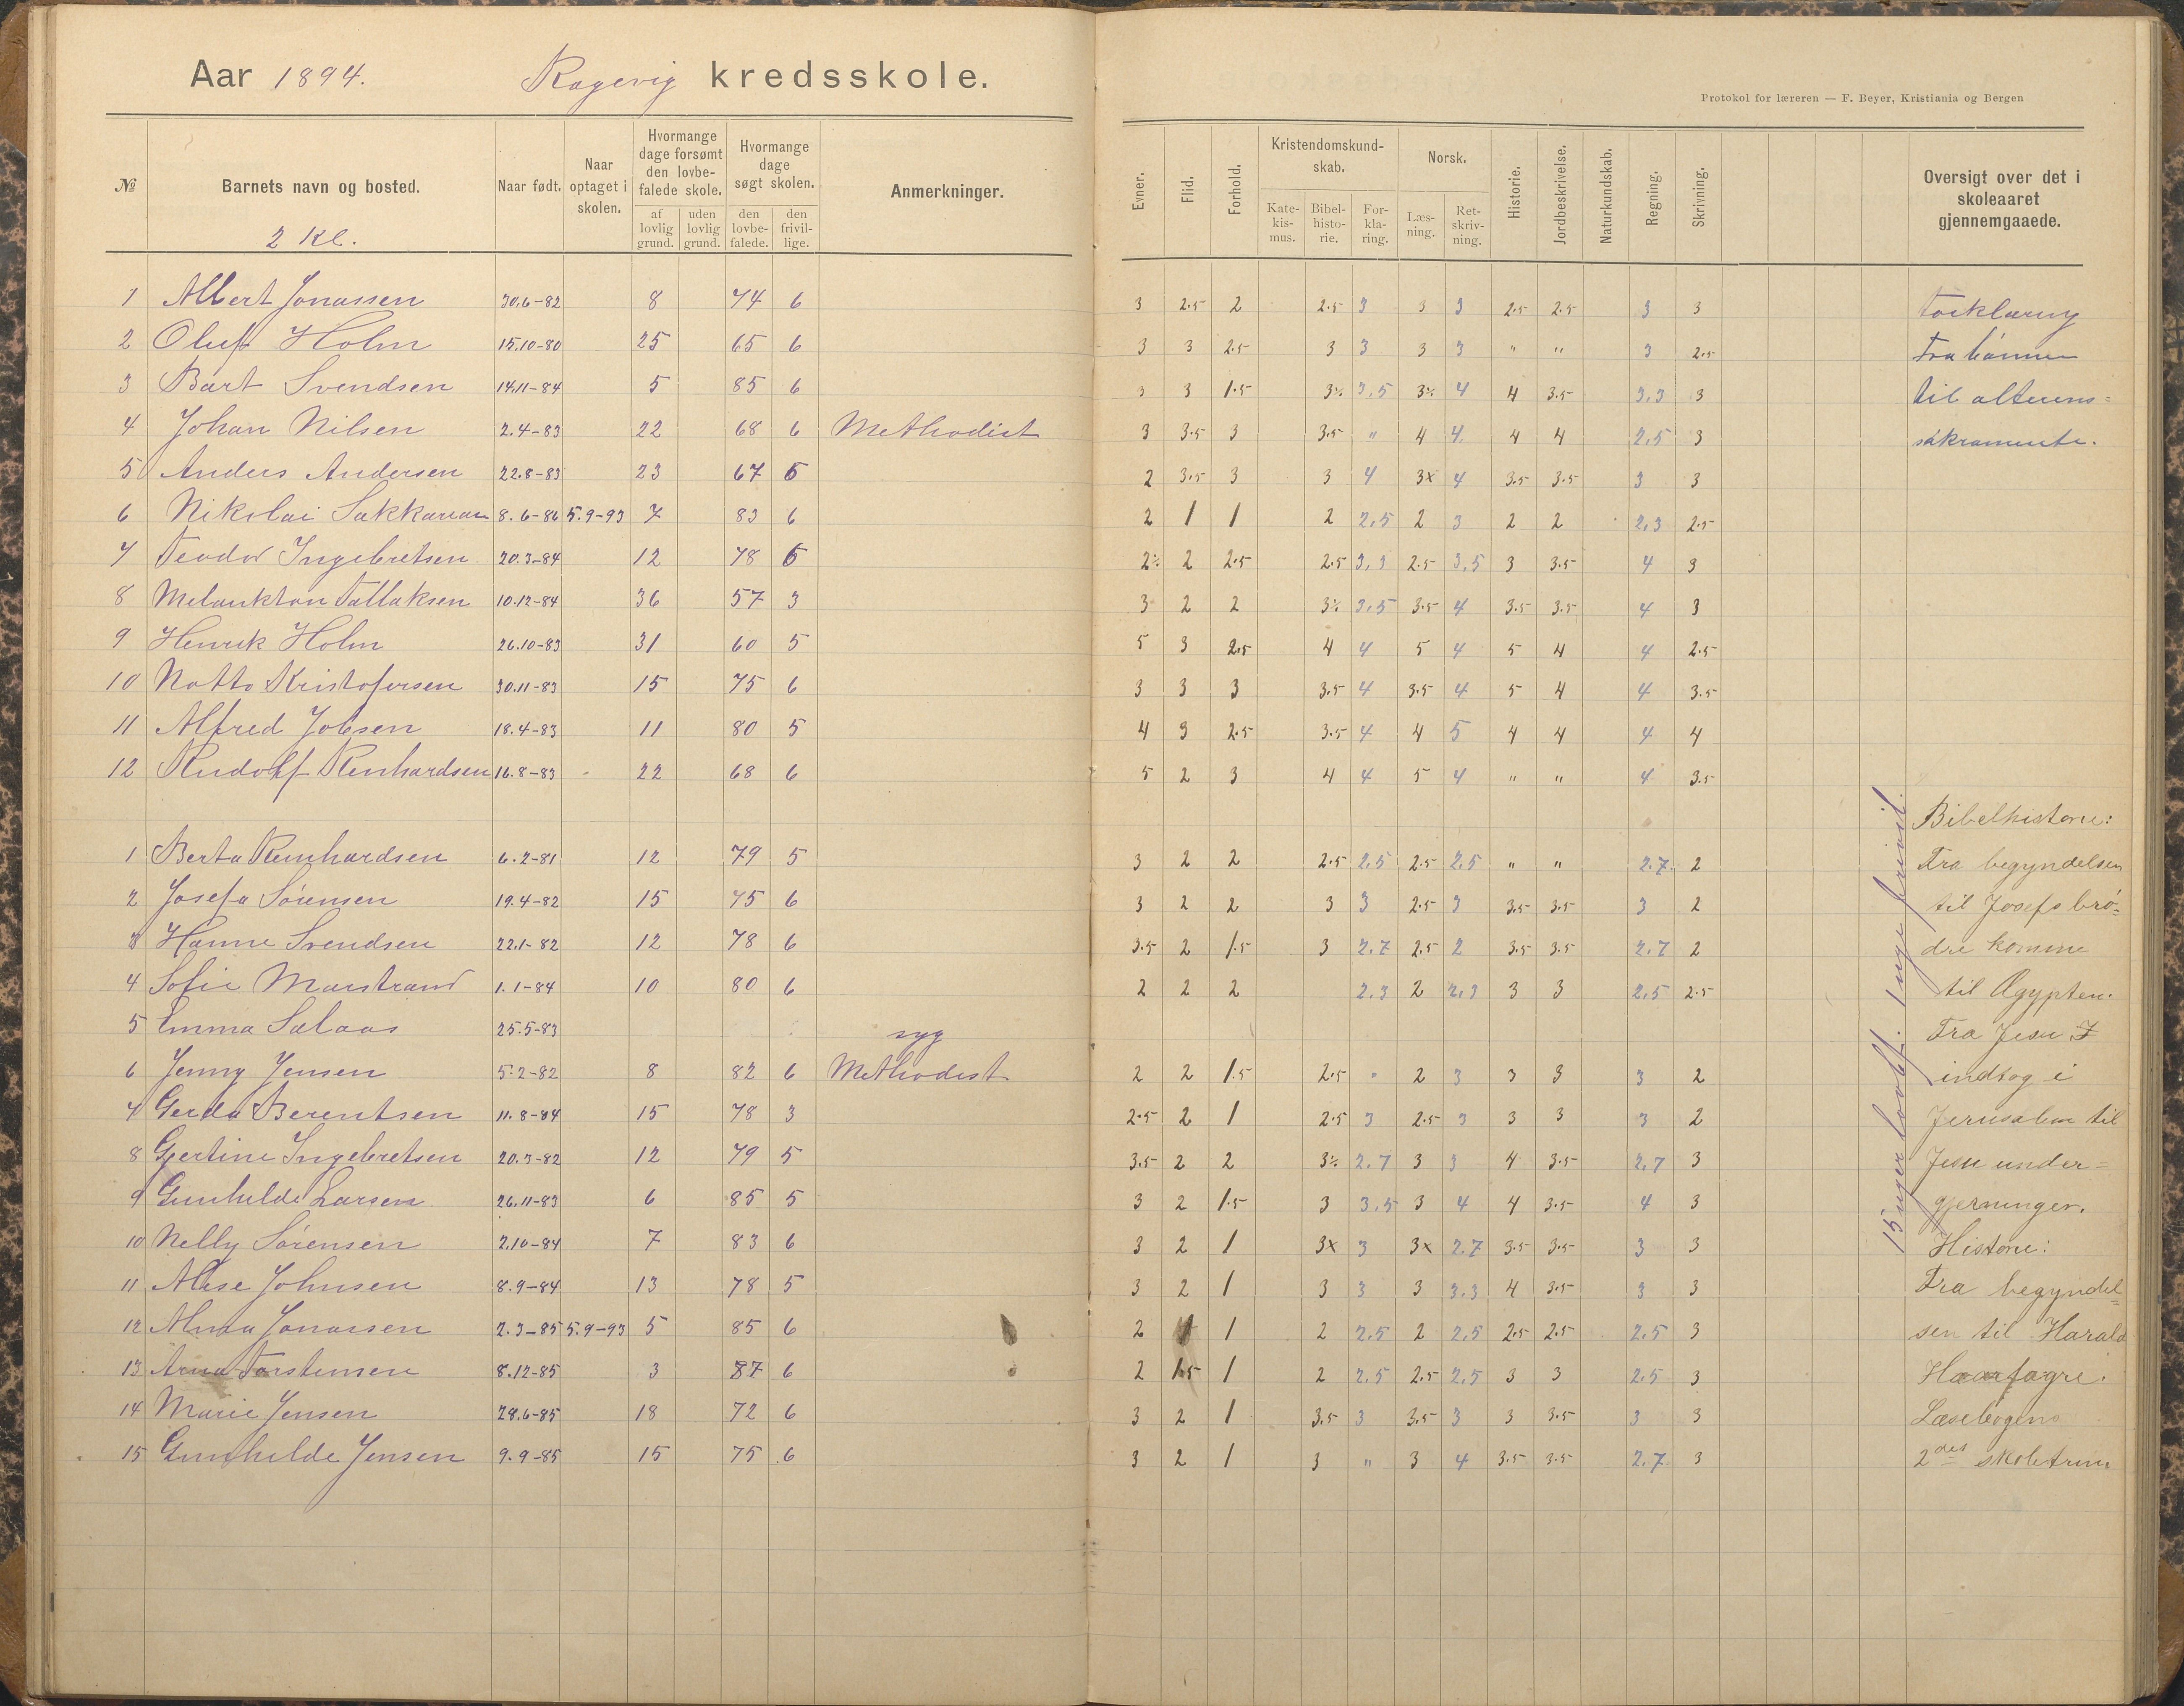 Aar 1894. Ragevig kredsskole.
Protokol for læreren — F. Beyer, Kristiania og Bergen
№ Barnets navn og bosted. Naar født. Naar optaget i skolen. Hvormange dage forsømt den lovbefalede skole. af lovlig grund. uden lovlig grund. Hvormange dage søgt skolen. den lovbefalede. den frivillige. Anmerkninger. Evner. Flid. Forhold. Kristendomskundskab. Katekismus. Bibelhistorie. Forklaring. Norsk. Læsning. Retskrivning. Historie. Jordbeskrivelse. Naturkundskab. Regning. Skrivning. Oversigt over det i skoleaaret gjennemgaaede.
2 Kl.
1 Albert Jonassen 30.6-82 8 74 6 3 2.5 2 2.5 3 3 3 2.5 2.5 3 3 Forklaring
2 Oluf Holm 15.10-80 25 65 6 3 3 2.5 3 3 3 3 " " 3 2.5 Fra bønnen
3 Bart Svendsen 14.11-84 5 85 6 3 3 1.5 3½ 3,5 3½ 4 4 3.5 3,3 3 til alterens=
4 Johan Nilsen 2.4-83 22 68 6 Methodist 3 3.5 3 3.5 " 4 4 4 4 2,5 3 sakramente.
5 Anders Andersen 22.8-83 23 67 5 2 3.5 3 3 4 3x 4 3.5 3.5 3 3
6 Nikolai Sakkarian 8.6-86 5.9-93 7 83 6 2 1 1 2 2,5 2 3 2 2 2,3 2.5
7 Teodor Ingebretsen 20.3-84 12 78 5 2½ 2 2.5 2.5 3,3 2.5 3,5 3 3.5 4 3
8 Melankton Tallaksen 10.12-84 36 57 3 3 2 2 3½ 3,5 3.5 4 3.5 3.5 4 3
9 Henrik Holm 26.10-83 31 60 5 5 3 2.5 4 4 5 4 5 4 4 2.5
10 Notto Kristofersen 30.11-83 15 75 6 3 3 3 3.5 4 3.5 4 5 4 4 3.5
11 Alfred Jobsen 18.4-83 11 80 5 4 3 2.5 3.5 4 4 5 4 4 4 4
12 Rudolf Reinhardsen 16.8-83 22 68 6 5 2 3 4 4 5 4 " " 4 3.5
Bibelhistorie:
1 Berta Reinhardsen 6.2-81 12 79 5 3 2 2 2.5 2,5 2.5 2,5 " " 2.7 2 Fra begyndelsen
2 Josefa Sørensen 19.4-82 15 75 6 3 2 2 3 3 2.5 3 3.5 3.5 3 2 til Josefs brø=
3 Hanne Svendsen 22.1-82 12 78 6 3.5 2 1.5 3 2,7 2.5 2 3.5 3.5 2,7 2 dre komme
4 Sofie Marstrand 1.1-84 10 80 6 2 2 2 2.3 2 2,3 3 3 2,5 2.5 til Ægypten.
5 Emma Salaas 25.5-83 syg Fra Jesu
6 Jenny Jensen 5.2-82 8 82 6 Methodist 2 2 1.5 2.5 " 2 3 3 3 3 2 indtog i
7 Gerda Berentsen 11.8-84 15 78 3 2.5 2 1 2.5 3 2.5 3 3 3 3 2 Jerusalem til
8 Gjertine Ingebretsen 20.3-82 12 79 5 3.5 2 2 3½ 2.7 3 3 4 3.5 2,7 3 Jesu under=
9 Gunhilde Larsen 26.11-83 6 85 5 3 2 1.5 3 3.5 3 4 4 3.5 4 3 gjerninger.
10 Nelly Sørensen 2.10-84 7 83 6 3 2 1 3x 3 3x 2.7 3.5 3.5 3 3 Historie:
11 Alise Johnsen 8.9-84 13 78 5 3 2 1 3 3 3 3.3 4 3.5 3 3 Fra begyndel=
12 Alma Jonassen 2.3-85 5.9-93 5 85 6 2 1 1 2 2.5 2 2,5 2.5 2.5 2.5 3 sen til Harald
13 Arna Torstensen 8.12-85 3 87 6 2 1.5 1 2 2.5 2.5 2,5 3 3 2,5 3 Haarfagre.
14 Marie Jensen 28.6-85 18 72 6 3 2 1 3.5 3 3.5 3 3 3.5 3 3 Læsebogens
15 Gunhilde Jensen 9.9-85 15 75 6 3 2 1 3 " 3 4 3.5 3.5 2.7 3 2det skoletrin
15 uger lovbf. 1 uge frivil.